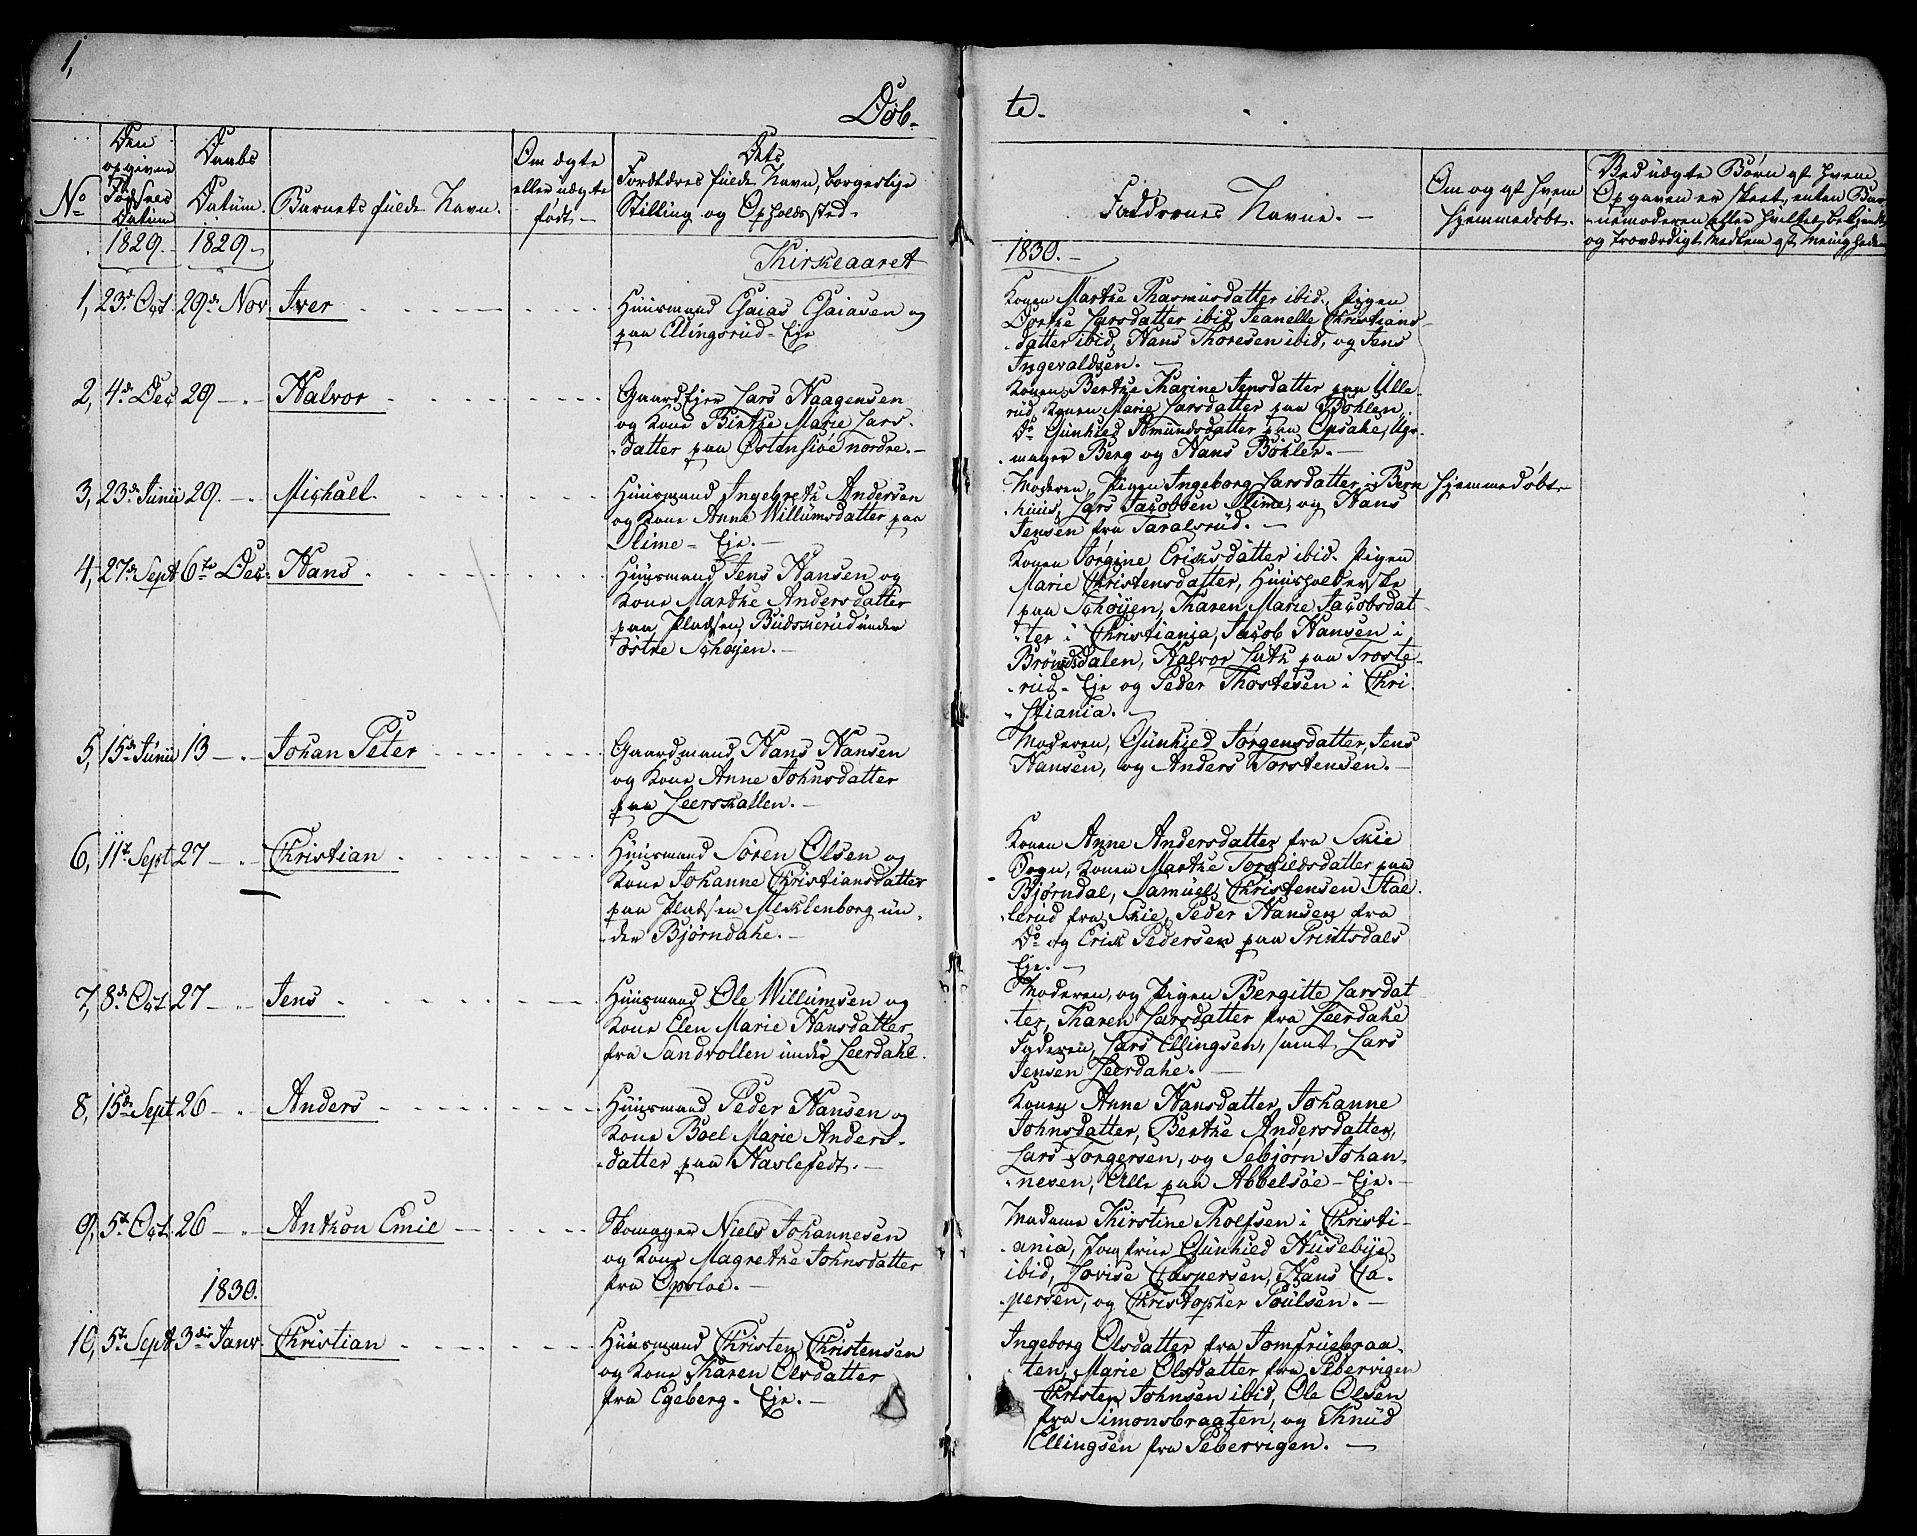 1,
Døb-
te.
No
Den opgivne Fødsels Datum
Daabs Datum.
Barnets fulde Navn.
Om ægte eller uægte født.-
Dets Forældres fulde Navn, borgerlige Stilling og Opholdssted.
Faddernes Navne. -
Om og af hvem hjemmedøbt.
Ved uægte Børn af hvem Opgaven er skeet, enten Barnemoderen eller hvilket bekjendt og troværdigt Medlem af Menigheden
1829.- 1829.-
Kirkeaaret
1830. -
1, 23d Oct. 29de Nov. Iver
Huusmand Esaias Esaiasen og
paa Ellingsrud-Eje
Konen Marthe Rasmusdatter ibid, Pigen
Dorthe Larsdatter ibid, Jeanette Christians-
datter ibid, Hans Thoresen ibid, og Jens
Ingevaldsen. -
2, 4de Dec 29 - .. Halvor
Gaardejer Lars Haagensen
og Kone Birthe Marie Lars-
datter paa Østensiøe nordre. -
Konen Berthe Karine Jensdatter paa Ulle-
rud, Konen Marie Larsdatter paa Bøhlen,
Do Gunhild Amundsdatter paa Opsahl, Uhr-
mager Berg og Hans Bøhler. -
3, 23de Junii 29. - .. Michael.
Huusmand Ingebreth Andersen
og Kone Anne Willumsdatter paa
Slime-Eje. -
Moderen, Pigen Ingeborg Larsdatter i Bern-
huus, Lars Jacobsen Slime, og Hans
Jensen fra Taralsrud. -
Hjemmedøbt
4, 27de Sept 6te Dec. Hans
Huusmand Jens Hansen og
Kone Marthe Andersdatter
paa Pladsen Budskerud under
østre Schøjen. -
Konen Jørgine Ericksdatter ibid. Pigen
Marie Christensdatter, Huusholderske
paa Schøyen, Karen Marie Jacobsdat-
ter i Christiania, Jacob Hansen i
Brøndsdalen, Halvor Luth paa Troste-
rud-Eje og Peder Thostesen i Chri-
stiania. -
5, 15de Junii 13 - .. Johan Peter
Gaardmand Hans Hansen
og Kone Anne Johnsdatter
paa Leerskallen. -
Moderen, Gunhild Jørgensdatter, Jens
Hansen, og Anders Torstensen. -
6, 11te Sept. 27 - .. Christian
Huusmand Søren Olsen og
Kone Johanne Christiansdatter
paa Pladsen Meklenborg un-
der Bjørndahl. -
Konen Anne Andersdatter fra Skie
Sogn, Konen Marthe Torkildsdatter paa
Bjørndal, Samuel Christensen Stal-
lerud fra Skie, Peder Hansen fra
Do og Erick Pedersen paa Printsdals
Eje. -
7, 8de Oct. 27 - .. Jens
Huusmand Ole Willumsen og
Kone Elen Marie Hansdatter
fra Sandvollen under Leerdahl.
Moderen, og Pigen Bergitte Larsdat-
ter, Karen Larsdatter fra Leerdahl
Faderen, Lars Ellingsen, samt Lars
Jensen Leerdahl. -
8, 15de Sept 26 - .. Anders
Huusmand Peder Hansen og
Kone Boel Marie Anders-
datter paa Havlefedt. -
Konen Anne Hansdatter, Johanne
Johnsdatter, Berthe Andersdatter,
Lars Torgersen, og Sebjørn Johan-
nesen, Alle paa Abbelsøe-Eje. -
9, 5te Oct. 26 - .. Anthon Emil
Skomager Niels Johannesen
og Kone Magrethe Johnsdatter
fra Opsloe. -
Madame Kirstine Tholfsen i Christi-
ania, Jomfrue Gunhild Husebye
ibid, Lovise Caspersen, Hans Ca-
persen, og Christopher Poulsen. -
1830.
10, 5te Sept 3die Janr. Christian
Huusmand Christen Christensen
og Kone Karen Olsdatter
fra Egeberg-Eje. -
Ingeborg Olsdatter fra Jomfruebraa-
ten, Marie Olsdatter fra Pebervigen
Christen Johnsen ibid, Ole Olsen
fra Simonsbraaten, og Knud
Ellingsen fra Pebervigen. -